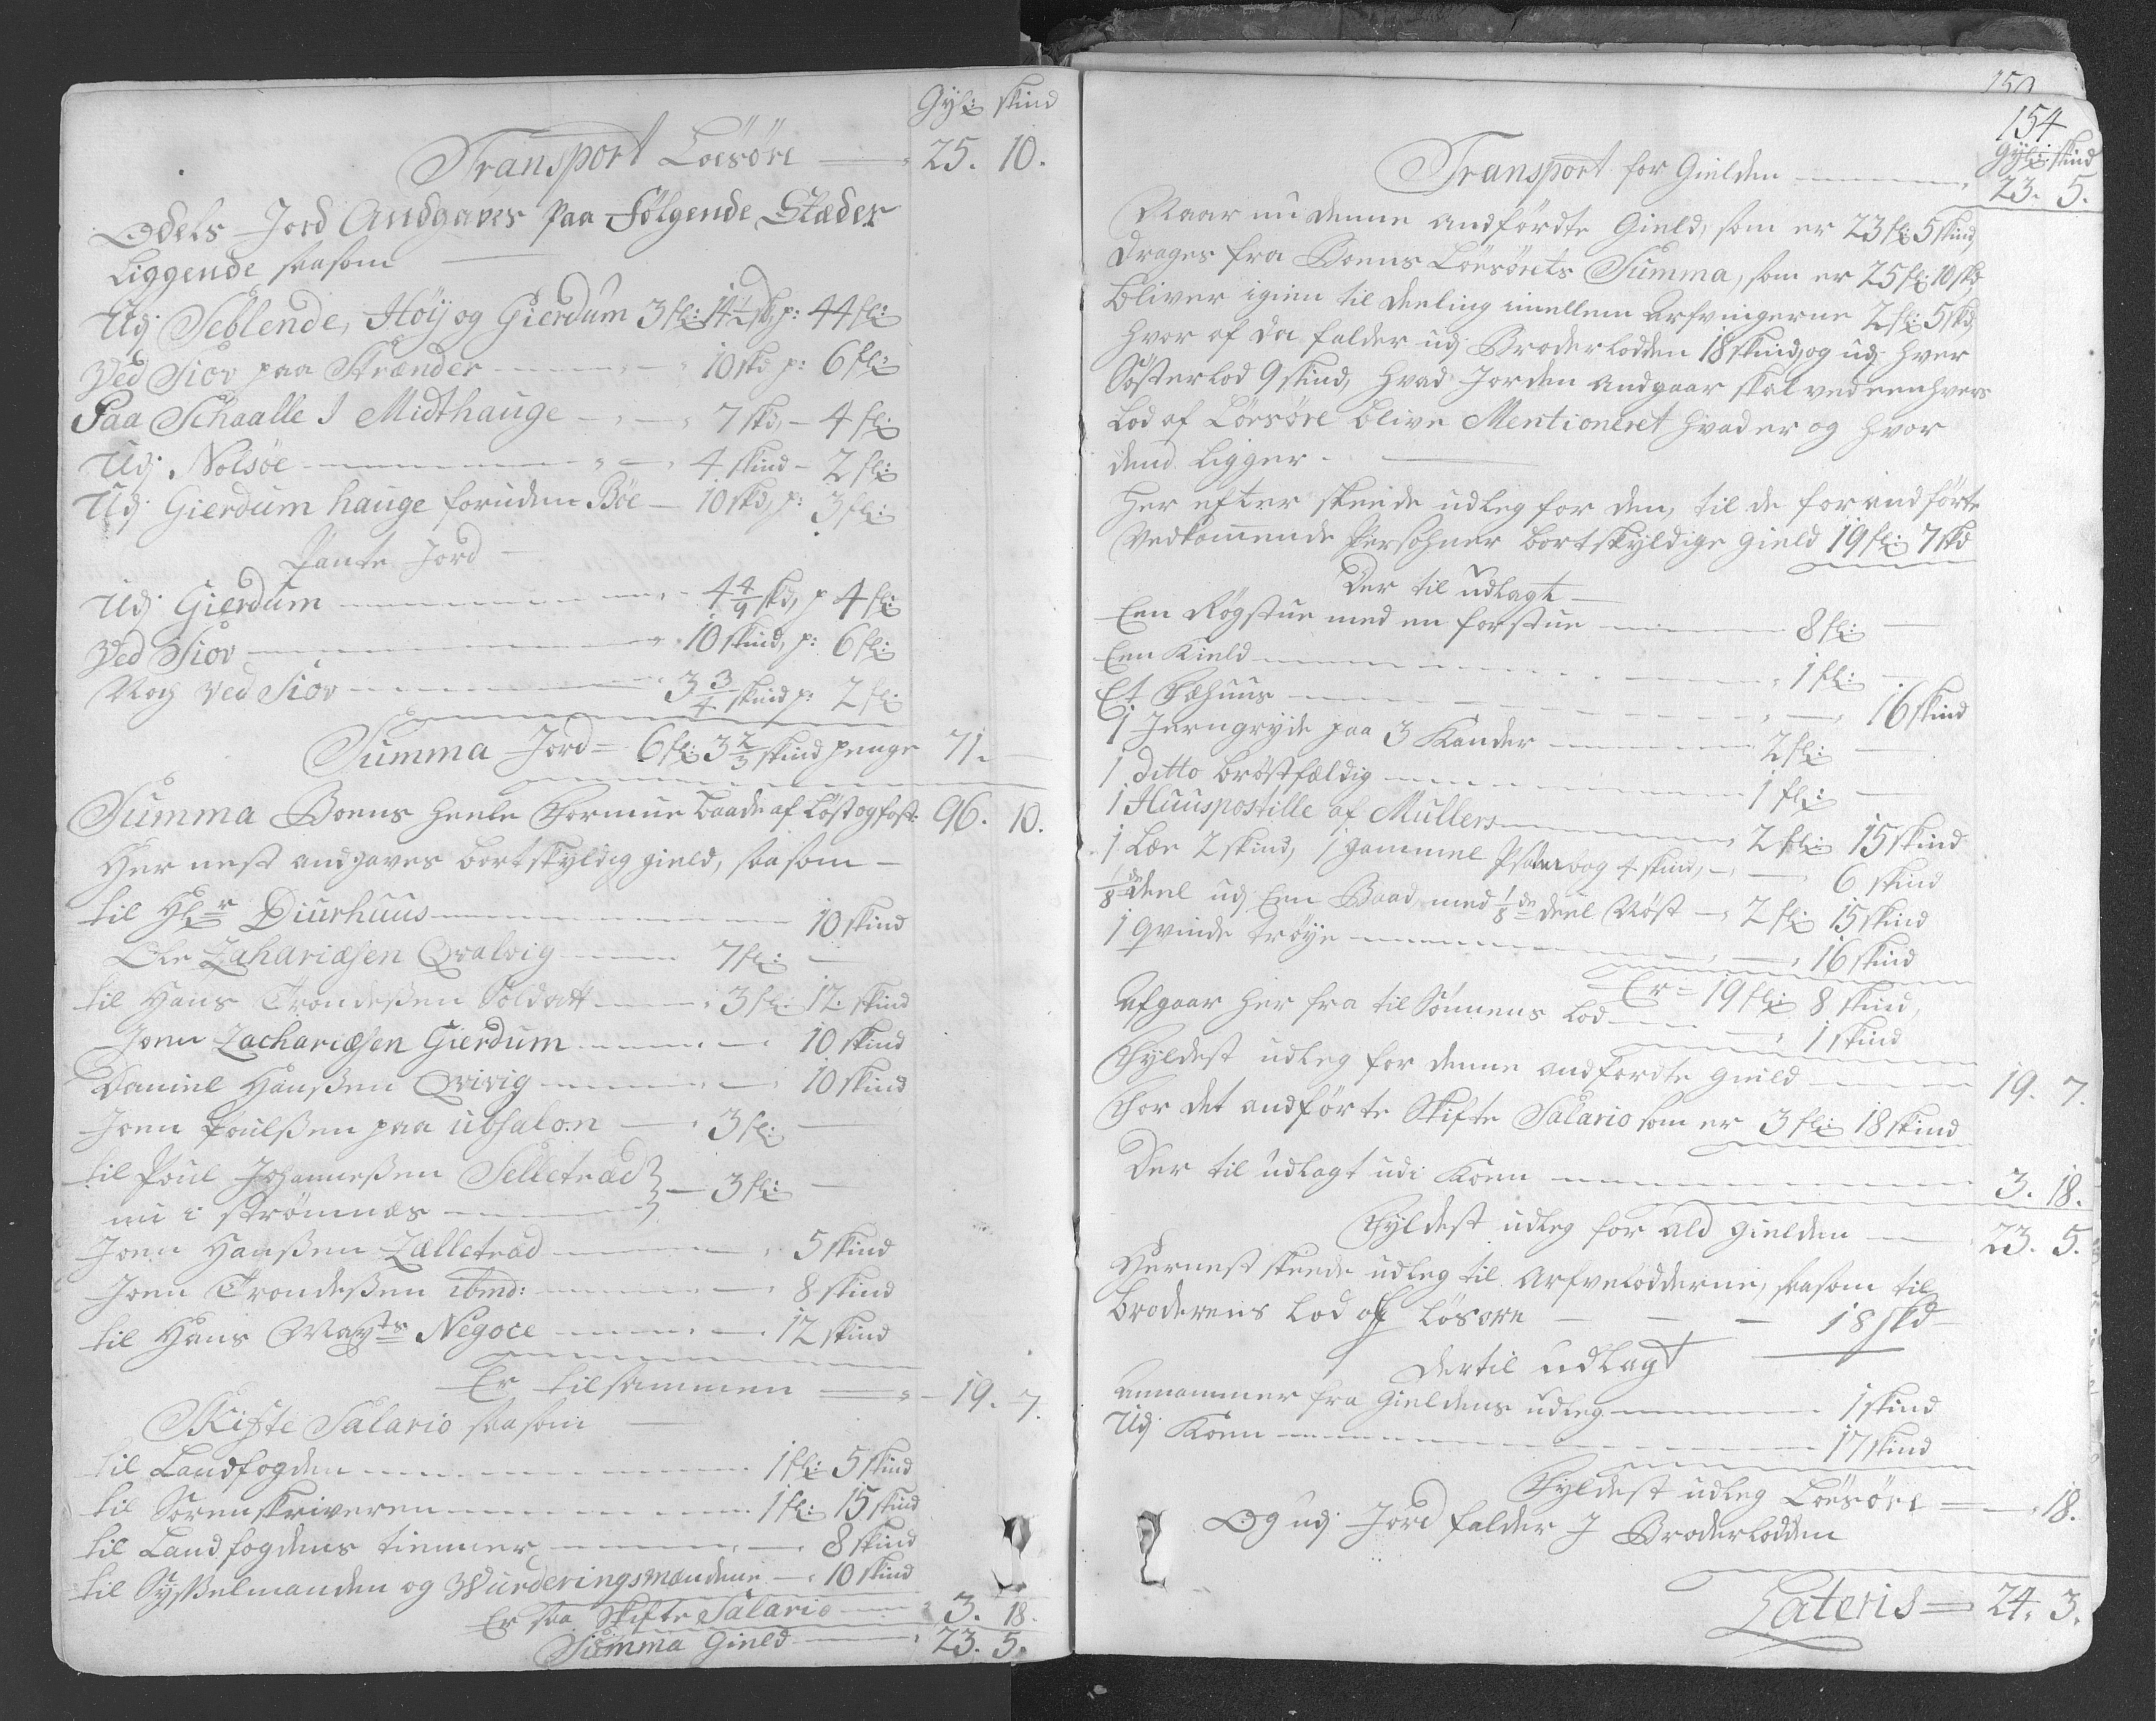 Gyl: skind
Transport Loesøre — 25. 10.
Odels Jord Andgaves paa Følgende Stæder
Liggende saasom
Udj Seblende, Høÿ og Gierdum 3 fl: 14 1/2 skd, p: 44 fl:
Ved Siov paa Strænder — 10 skd p: 6 fl:
Paa Schaalle I Midthauge — 7 skd, – 4 fl:
Udj Nolsöe — 4 skind – 2 fl:
Udj Gierdum hauge foruden Böe — 10 skd, p: 3 fl:
Pante Jord
Udj Gierdum — 4 4/9 skd, p 4 fl:
Ved Siov — 10 skind, p: 6 fl:
Noch ved Siov — 3 3/4 skind p: 2 fl:
Summa Jord = 6 fl: 3 2/3 skind penge 71.
Summa Boens heele Formue baade af Løst og fast: 96. 10.
Her nest andgaves bortskyldig gield, saasom —
til Hr Diurhuus — 10 skind
Ole Zachariæsen Qvalvig — 7 fl:
til Hans Trondeßen Soldatt — 3 fl: 12 skind
Joen Zachariæsen Gierdum — 10 skind
Daniel Hanßen Qvivig — 10 skind
Joen Poulßen paa ubsalon — 3 fl:
til Poul Johanneßen Selletræd
nu i strömnæs — 3 fl:
Joen Hanßen Zælletræd — 5 skind
Joen Trondeßen ibmd: — 8 skind
til Hans Mayts Negoce — 12 skind
Er tilsammen — 19. 7.
Skifte Salario saasom
til Landfogden — 1 fl: 5 skind
til Sorenskriveren — 1 fl: 15 skind
til Landfogdens tienner — 8 skind
til Sysselmanden og Wurderingsmændene — 10 skind
Er saa Skifte Salario — 3. 18.
Summa Gield — 23. 5.
150
154
Gyl: skind
Transport for Gielden — 23. 5.
Naar nu denne andførdte Gield, som er 23 fl: 5 skind
drages fra Boens Löesörets Summa, som er 25 fl: 10 skd
bliver igien til deeling imellem Arfvingerne 2 fl: 5 skd,
hvor af da falder udj Broderlodden 18 skind, og udj hver
Søsterlod 9 skind, hvad Jorden andgaar skal ved eenhvers
Lod af Löesöre blive Mentioneret hvad er og hvor
dend ligger.
Her efter skeede udleg for den, til de for andførte
Vedkommende Persohner bortskyldige gield 19 fl: 7 skd
Der til udlagt —
Een Røgstue med en forstue — 8 fl:
Een Kield — 1 fl:
Et Fæhuus — 16 skind
1 Jerngryde paa 3 Kander — 2 fl:
1 ditto brøstfældig — 1 fl:
1 Huuspostille af Mullers — 2 fl: 15 skind
1 Lær 2 skind, 1 gammel Psalmbog 4 skind, — 6 skind
1/8 de deel udj Een Baad med 1/8 de deel Nøst — 2 fl: 15 skind
1 qvinde trøye — 16 skind
Er = 19 fl: 8 skind,
Afgaar her fra til Sønnens Lod — 1 skind
Fyldest udleg for denne andførdte gield — 19. 7.
For det andførte Skifte Salario som er 3 fl: 18 skind
Der til udlagt udi Koen — 3. 18.
Fyldest udleg for ald gielden — 23. 5.
Hernest skeede udleg til Arfvelodderne, saasom til
broderens Lod af løsøre — 18 skd
dertil udlagt
Annammer fra Gieldens udleg — 1 skind
Udj Koen — 17 skind
Fyldest udleg Löesöre — 18.
Og udj Jord falder J Broderlodden
Lateris = 24. 3.